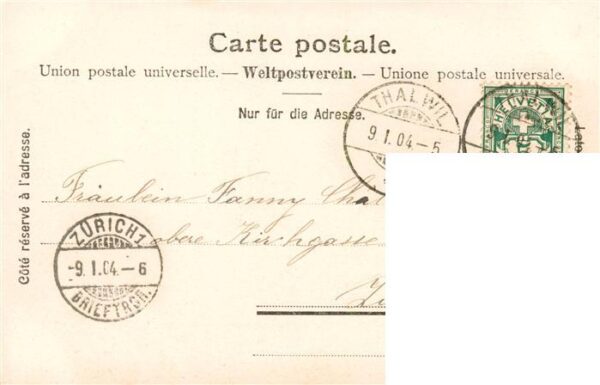 Carte postale.
Union postale universelle. — Weltpostverein. — Unione postale universale.
Nur für die Adresse.
Côté réservé à l'adresse.
THALWIL
9 I. 04 – 5
HELVETIA
Fräulein Fanny
obere Kirchgasse
ZÜRICH 1
-9. I. 04. – 6
BRIEFTRGR.